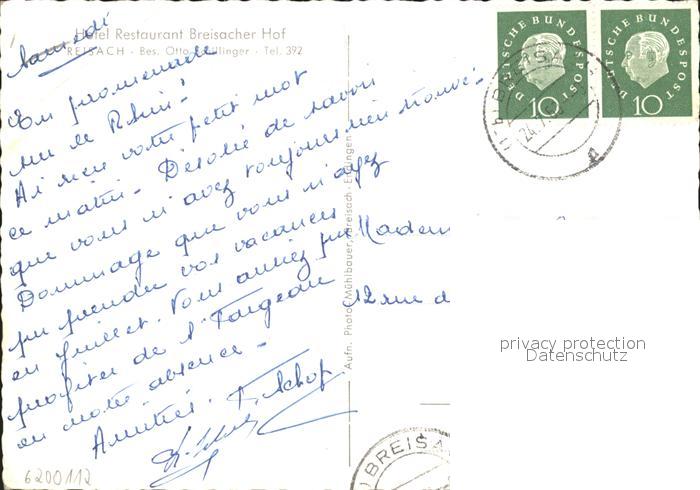 Hotel Restaurant Breisacher Hof
BREISACH - Bes. Otto Tel. 392
Samedi
En promenade
sur le Rhin!
Ai reçu votre petit mot
ce matin. Désolée de savoir
que vous n'avez toujours rien trouvé.
Dommage que vous n'ayez
pu prendre vos vacances
en juillet. Vous auriez pu
profiter de
en notre absence.
Amitiés.
Aufn. Photo-Mühlbauer, Breisach
Madem
12 rue d
DEUTSCHE BUNDESPOST
10
DEUTSCHE BUNDESPOST
10
BREISA
privacy protection
Datenschutz
6200112